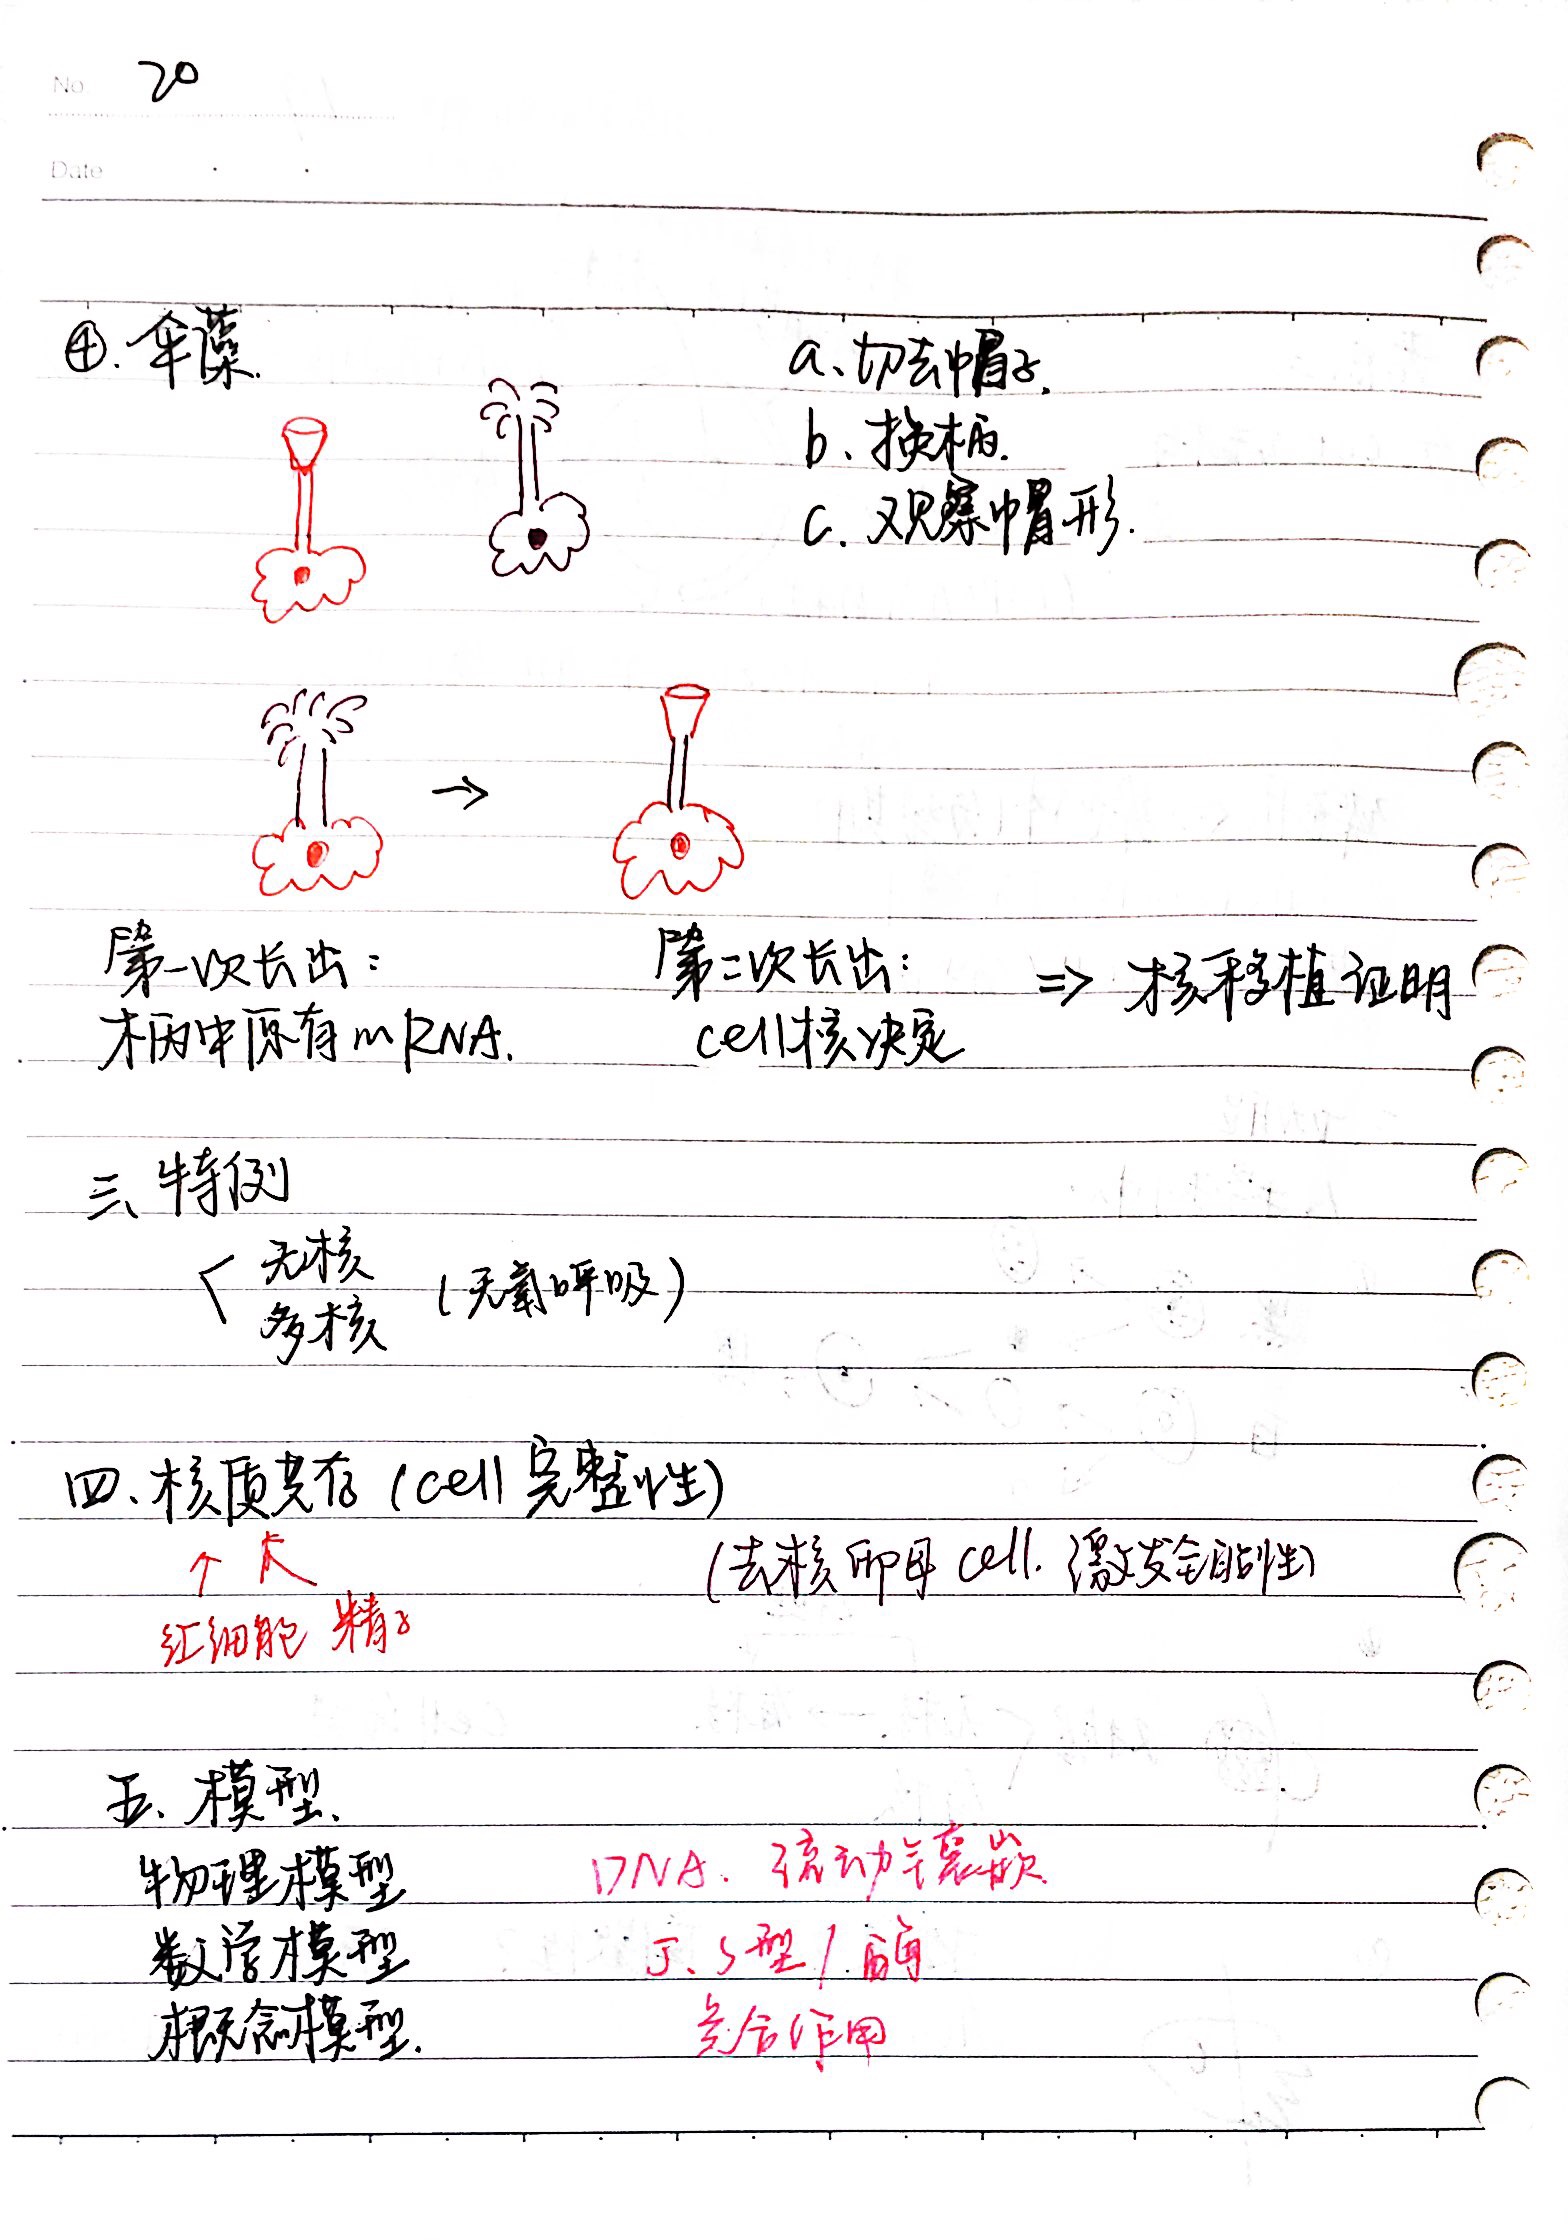 No. 20
Date
④. 伞藻.
a、切去帽子.
b、换柄.
c. 观察帽形.
第一次长出：
柄中原有mRNA.
第二次长出：
cell核决定
=> 核移植证明
三、特例
无核
多核
(无氧呼吸)
四、核质共存 (cell 完整性)
↑ ↑
红细胞 精子
(去核卵母 cell. 激发全能性)
五、模型、
物理模型 DNA. 流动镶嵌
数学模型 J、S型 / 酶
概念模型. 光合作用